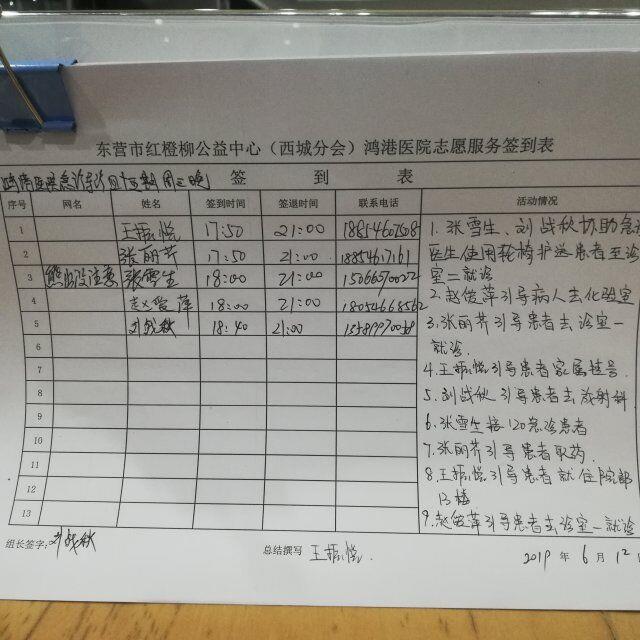 东营市红橙柳公益中心（西城分会）鸿港医院志愿服务签到表
签 到 表
序号 网名 姓名 签到时间 签退时间 联系电话 活动情况
1 王振悦 17:50 21:00
2 张丽芹 17:50 21:00 18854617161
3 熊出没注意 张雪生 18:00 21:00
4 赵俊萍 18:00 21:00
5 刘战秋 18:40 21:00
6
7
8
9
10
11
12
13
1. 张雪生、刘战秋协助急诊
医生使用轮椅护送患者至诊
室二就诊
2. 赵俊萍引导病人去化验室
3. 张丽芹引导患者去诊室一
就诊
4. 王振悦引导患者家属挂号
5. 刘战秋引导患者去放射科
6. 张雪生接120急诊患者
7. 张丽芹引导患者取药
8. 王振悦引导患者就住院部
13楼
9. 赵俊萍引导患者去诊室一就诊
组长签字: 刘战秋 总结撰写 王振悦. 2019 年 6 月 12